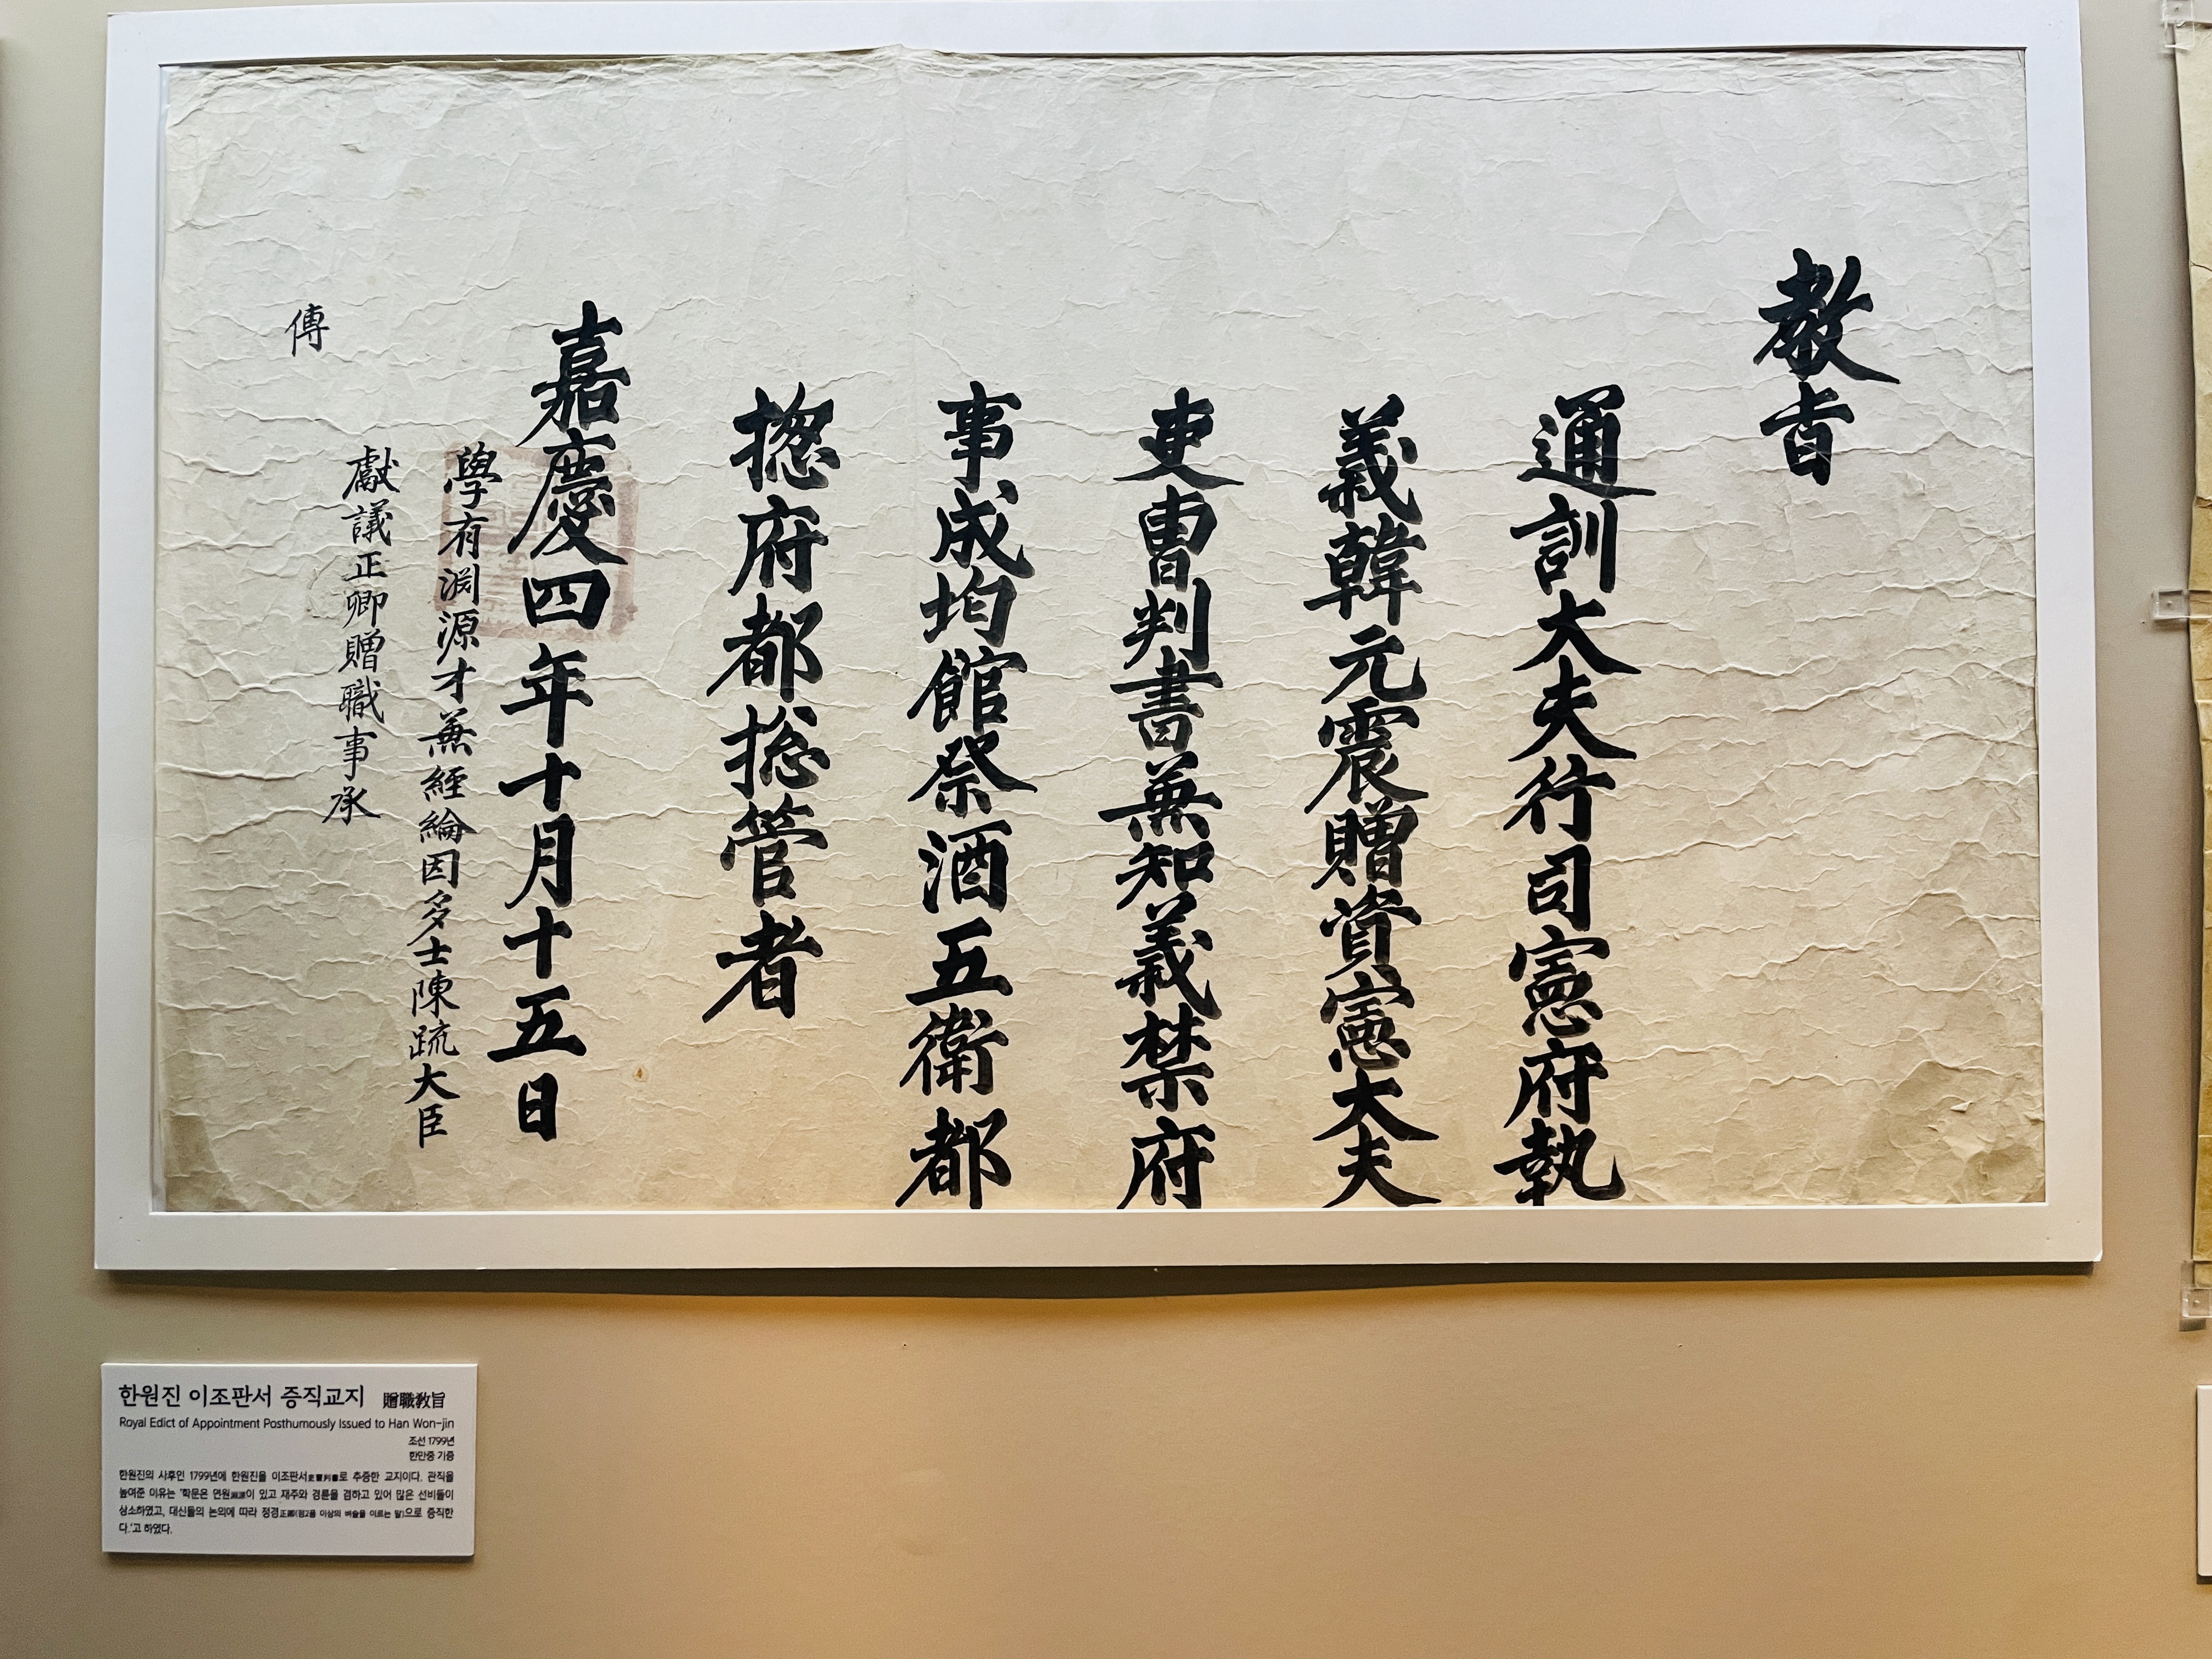 敎旨
通訓大夫行司憲府執
義韓元震贈資憲大夫
吏曹判書兼知義禁府
事成均館祭酒五衛都
摠府都摠管者
嘉慶四年十月十五日
學有淵源才兼經綸因多士陳疏大臣
獻議正卿贈職事承
傳
한원진 이조판서 증직교지 贈職敎旨
Royal Edict of Appointment Posthumously Issued to Han Won-jin
조선 1799년
한만중 기증
한원진의 사후인 1799년에 한원진을 이조판서吏曹判書로 추증한 교지이다. 관직을
높여준 이유는 '학문은 연원淵源이 있고 재주와 경륜을 겸하고 있어 많은 선비들이
상소하였고, 대신들의 논의에 따라 정경正卿(정2품 이상의 벼슬을 이르는 말)으로 증직한
다.'고 하였다.